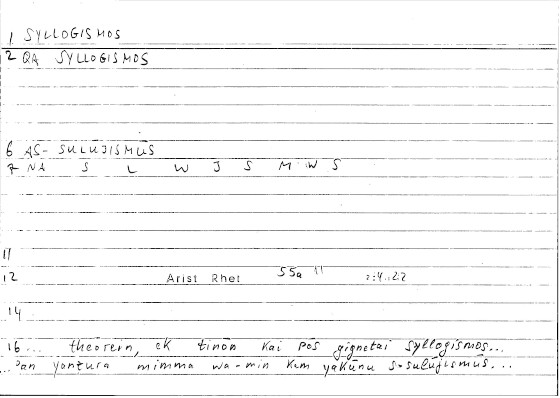 1 SYLLOGISMOS
2 QA SYLLOGISMOS
6 AS- SULUJISMUS
7 NA S L W J S M W S
11
12 Arist Rhet 55a 11
14
16... theorein, ek tinōn kai pōs gignetai syllogismos...
...'an yantura mimma wa-min kam yakūnu s-sulūjismūs...